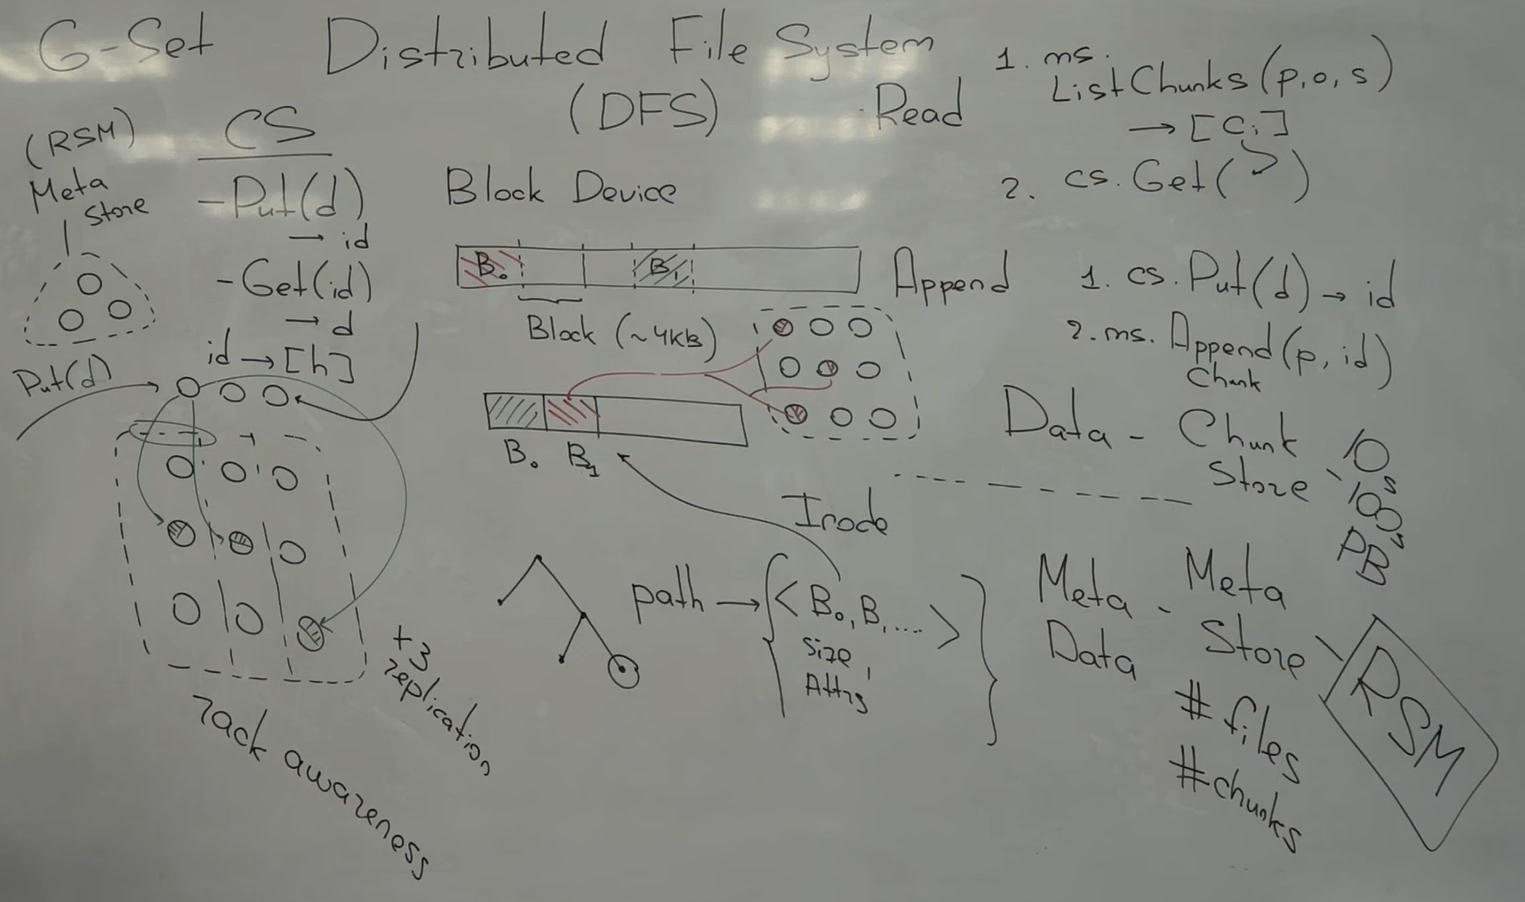 G-Set
Distributed File System
(DFS)
(RSM)
Meta
Store
CS
-Put(d)
→ id
-Get(id)
→ d
id → [h]
Put(d)
+3
replication
rack awareness
Block Device
B₀
B₁
Block (~4KB)
B₀ B₁
Inode
path → { < B₀, B₁, .... > }
Size,
Attrs
Read
1. ms.
ListChunks(p,o,s)
→ [ci]
2. cs.Get( )
Append
1. cs.Put(d) → id
2. ms. Append(p, id)
Chunk
Data - Chunk
Store
10s
100s
PB
Meta - Meta
Data Store
RSM
# files
#chunks